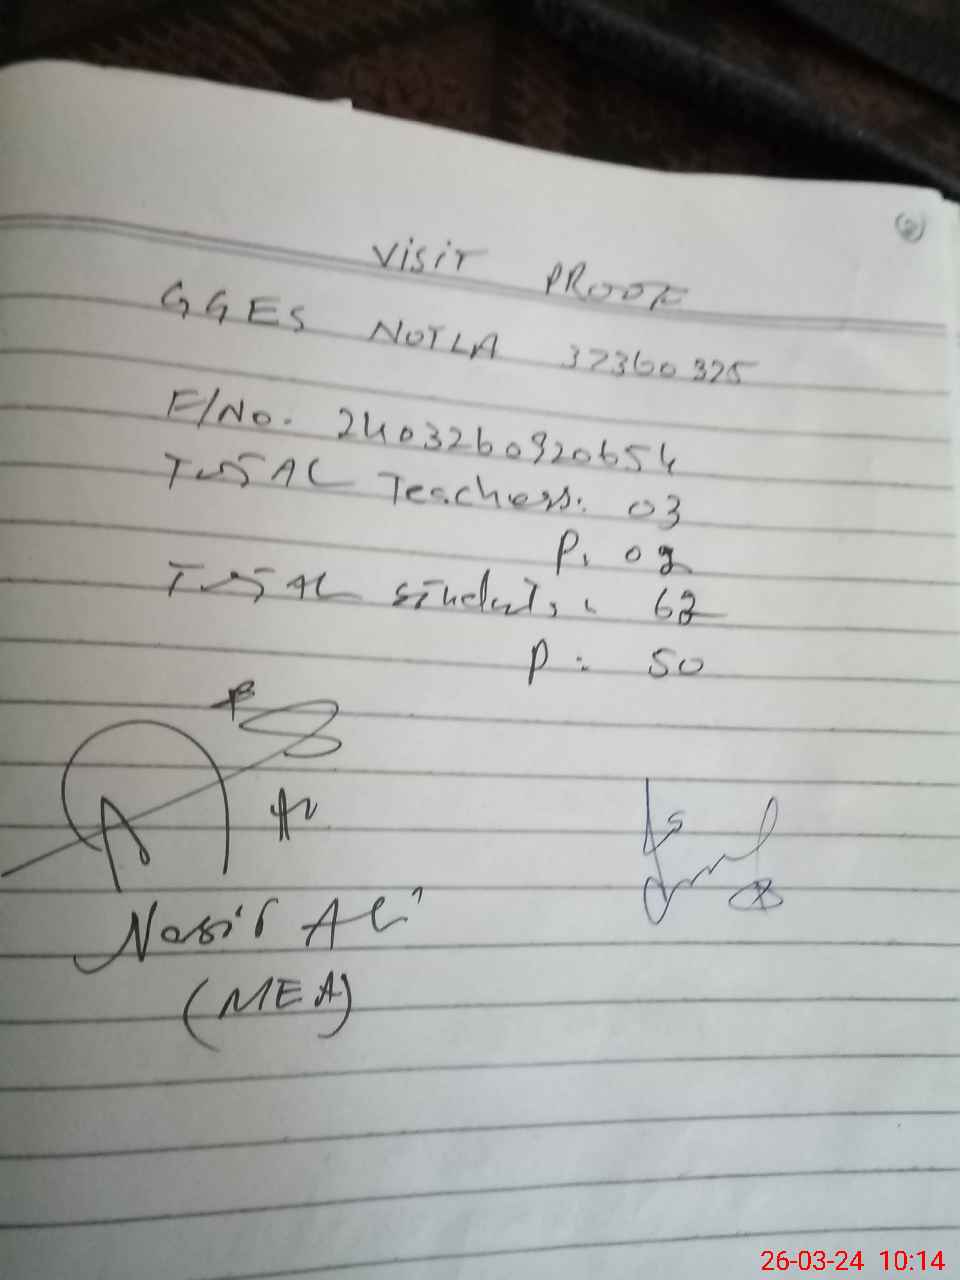 VISIT PROOF
GGES NOTLA 32360325
F/No. 2403260920654
TOTAL Teachers: 03
P. 02
TOTAL students: 62
P: 50
Nasir Ali
(MEA)
26-03-24 10:14